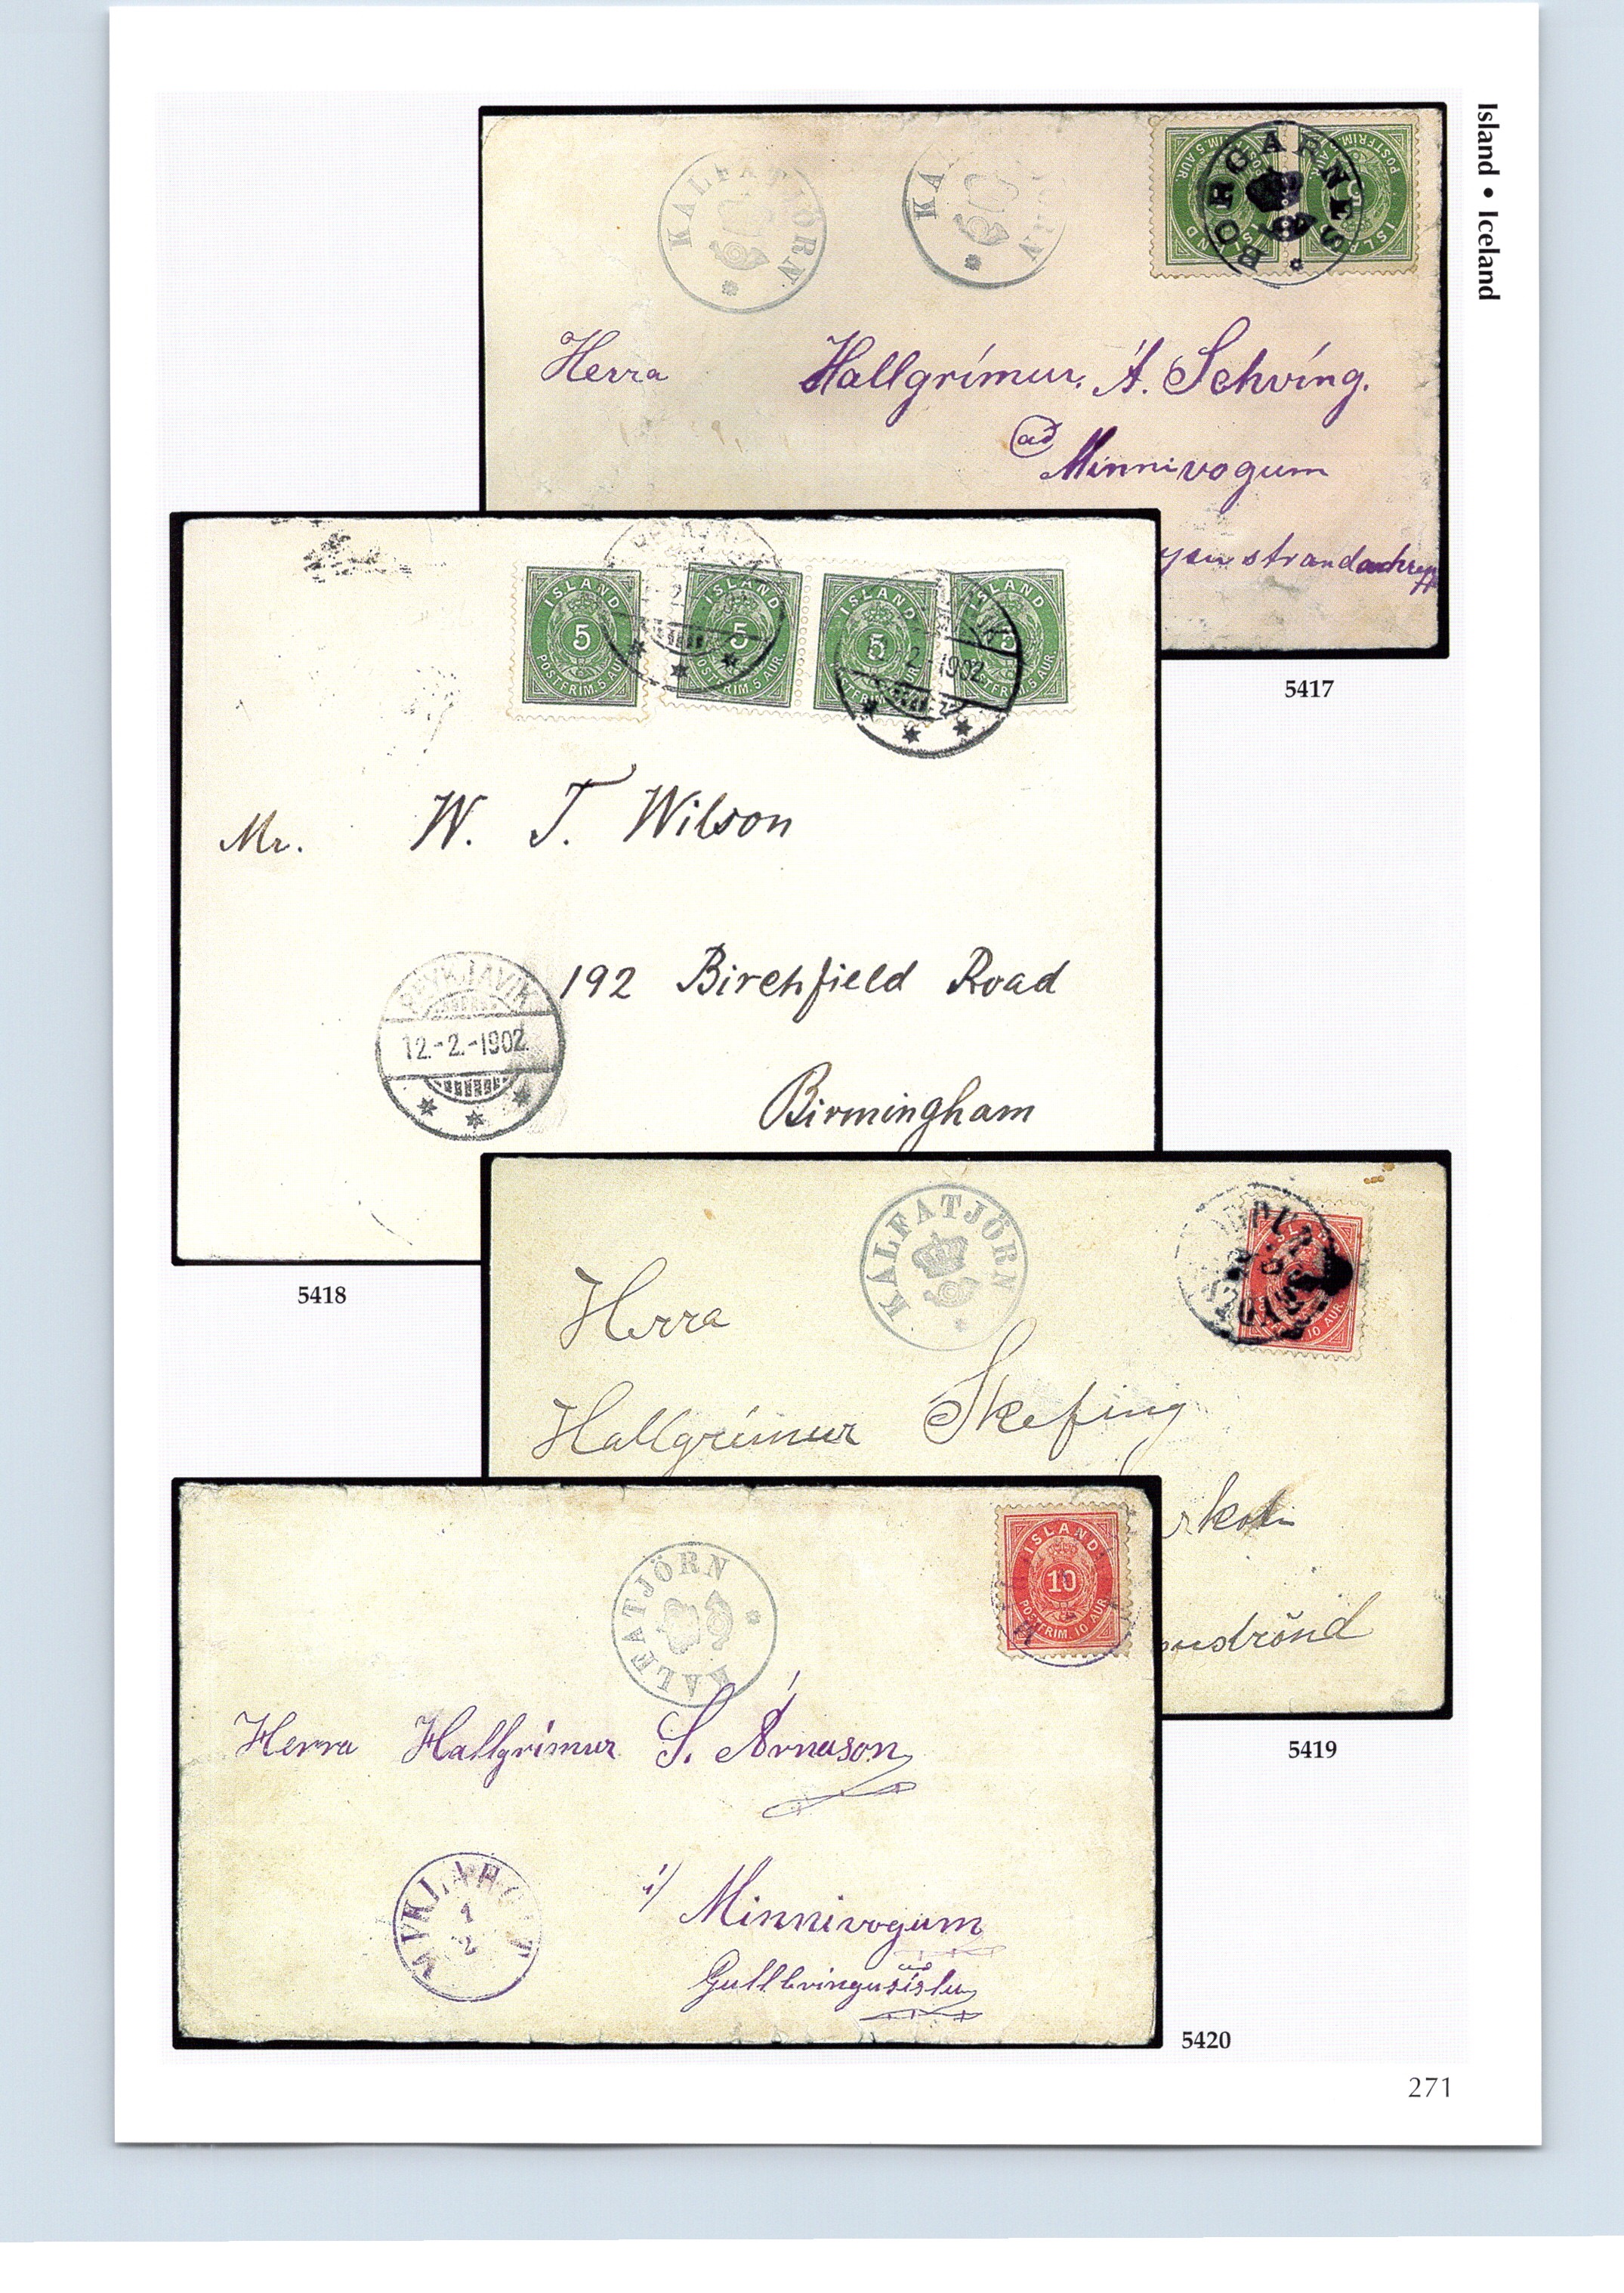 Island • Iceland
KALFATJÖRN
KA JÖRN
BORGARNES
ISLAND
POSTFRIM. 5 AUR
ISLAND
POSTFRIM. 5 AUR
Herra Hallgrímur. Á. Schvíng.
að
Minnivogum
5417
ISLAND
5
POSTFRIM. 5 AUR.
ISLAND
5
POSTFRIM. 5 AUR.
ISLAND
5
POSTFRIM. 5 AUR
ISLAND
5
POSTFRIM. 5 AUR.
2.-1902
Mr. W. T. Wilson
192 Birchfield Road
REYKJAVIK
12.-2.-1902
Birmingham
5418
KALFATJÖRN
10 AUR.
Herra
Hallgrímur Skefing
5419
KALFATJÖRN
ISLAND
10
POSTFRIM. 10 AUR.
Herra Hallgrímur S. Árnason
í/ Minnivogum
1
2
Gullbringusíslu
5420
271